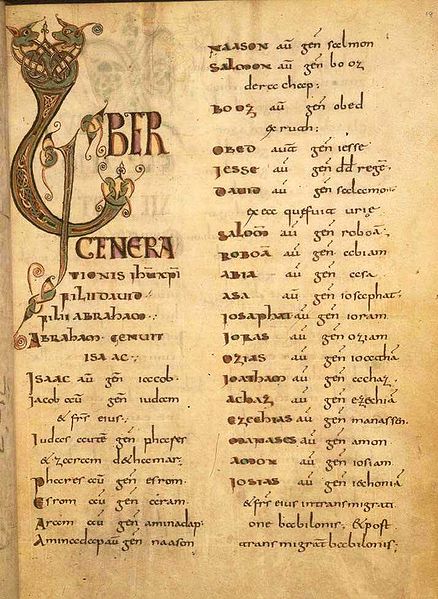 LIBER
GENERA
TIONIS ihū xpī
FILII DAUID
FILII ABRAHAM
ABRAHAM GENUIT
ISAAC
ISAAC aū gēn iacob·
iacob aū gēn iudam
& frs eius·
Iudas autē gēn phares
& zaram dethamar·
Phares aū gēn esrom·
Esrom aū gēn aram·
Aram aū gēn aminadap·
Aminadap aū gēn naason
NAASON aū gēn salmon
SALMON aū gēn booz
derachab·
BOOZ aū gēn obed
exruth·
OBED autē gēn iesse
IESSE aū gēn dd regē·
DAUID aū gēn salamō·
exea quefuit urię
SALOMŌ aū gēn roboā·
ROBOĀ aū gēn abiam
ABIA aū gēn asa
ASA aū gēn iosaphat·
IOSAPHAT aū gēn ioram·
IORAS aū gēn oziam
OZIAS aū gēn ioathā
IOATHAM aū gēn achaz·
ACHAZ aū gēn ezechiā
EZECHIAS aū gēn manassen·
MANASES aū gēn amon
AMON aū gēn iosiam·
IOSIAS aū gēn iechoniā
& frs eius intransmigrati
one babilonis· & post
transmigrat babilonis·